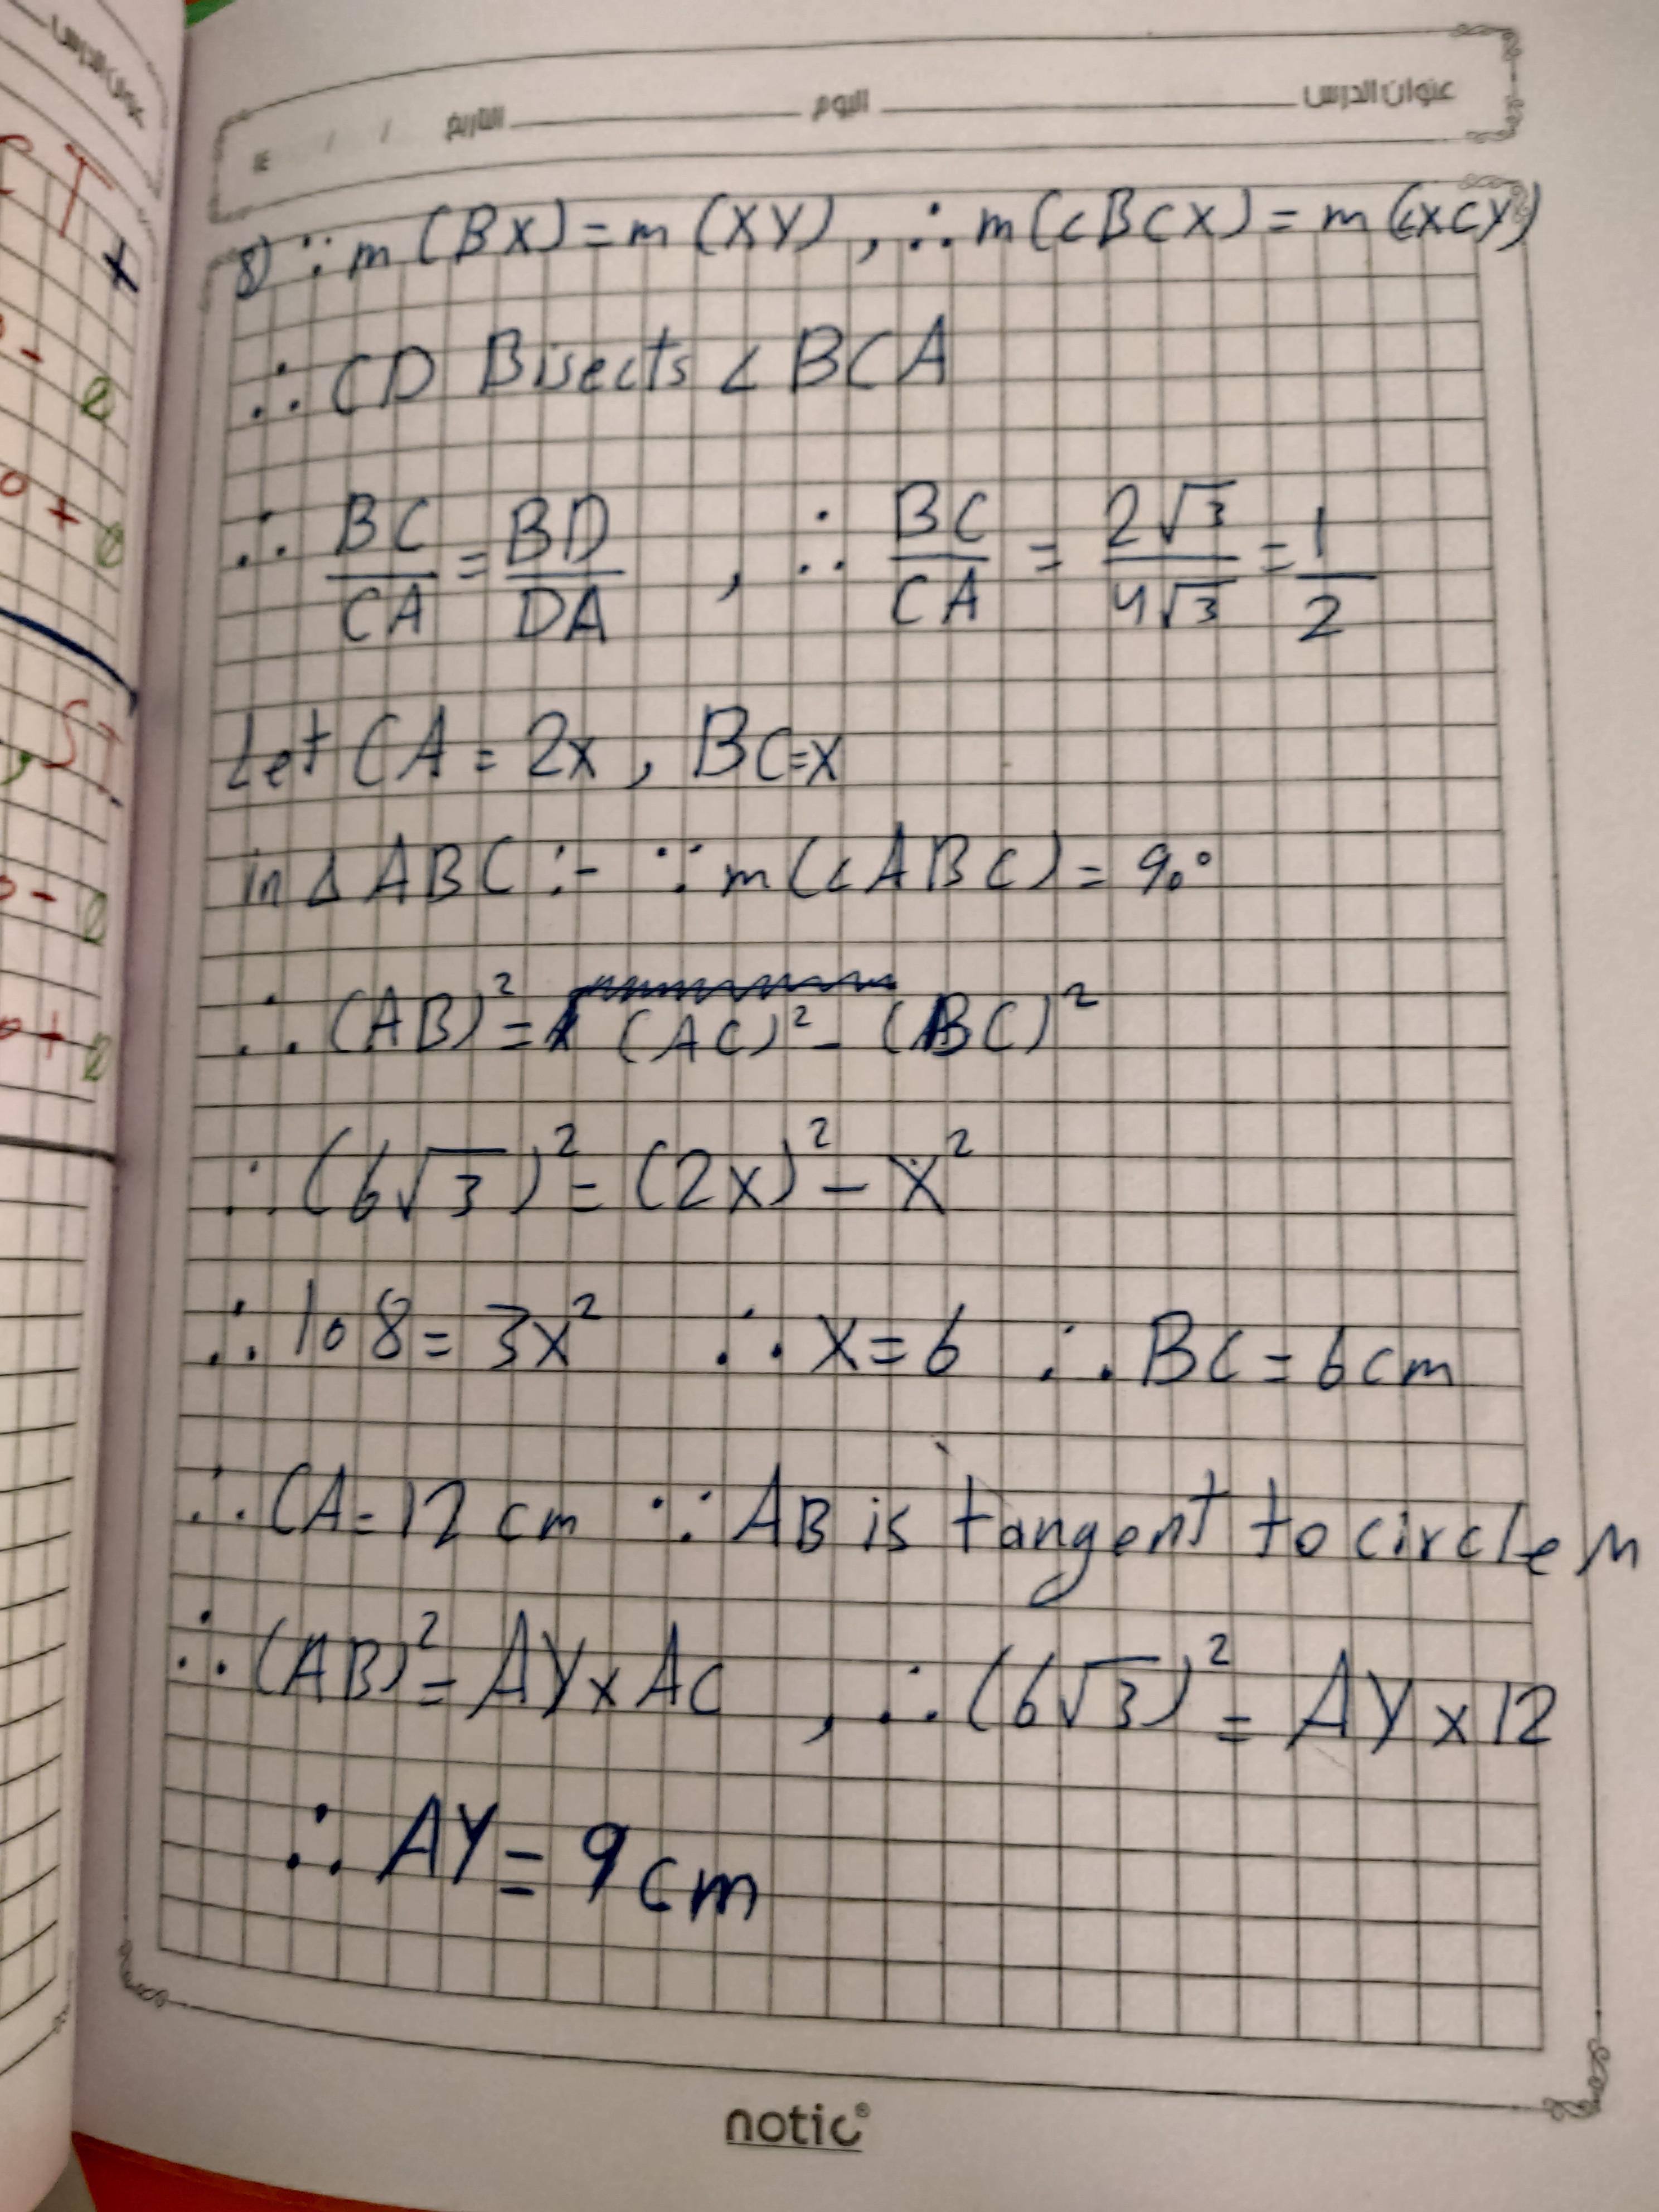 عنوان الدرس اليوم التاريخ / /
8) ∵ m(BX) = m(XY) , ∴ m(∠BCX) = m(∠XCY)
∴ CD Bisects ∠ BCA
∴ BC/CA = BD/DA , ∴ BC/CA = 2√3/4√3 = 1/2
Let CA = 2x , BC=x
in Δ ABC :- ∵ m(∠ABC) = 90°
∴ (AB)² = (AC)² - (BC)²
∴ (6√3)² = (2x)² - x²
∴ 108 = 3x² ∴ x = 6 ∴ BC = 6cm
∴ CA = 12 cm ∵ AB is tangent to circle M
∴ (AB)² = AY x AC , ∴ (6√3)² = AY x 12
∴ AY = 9cm
notic®